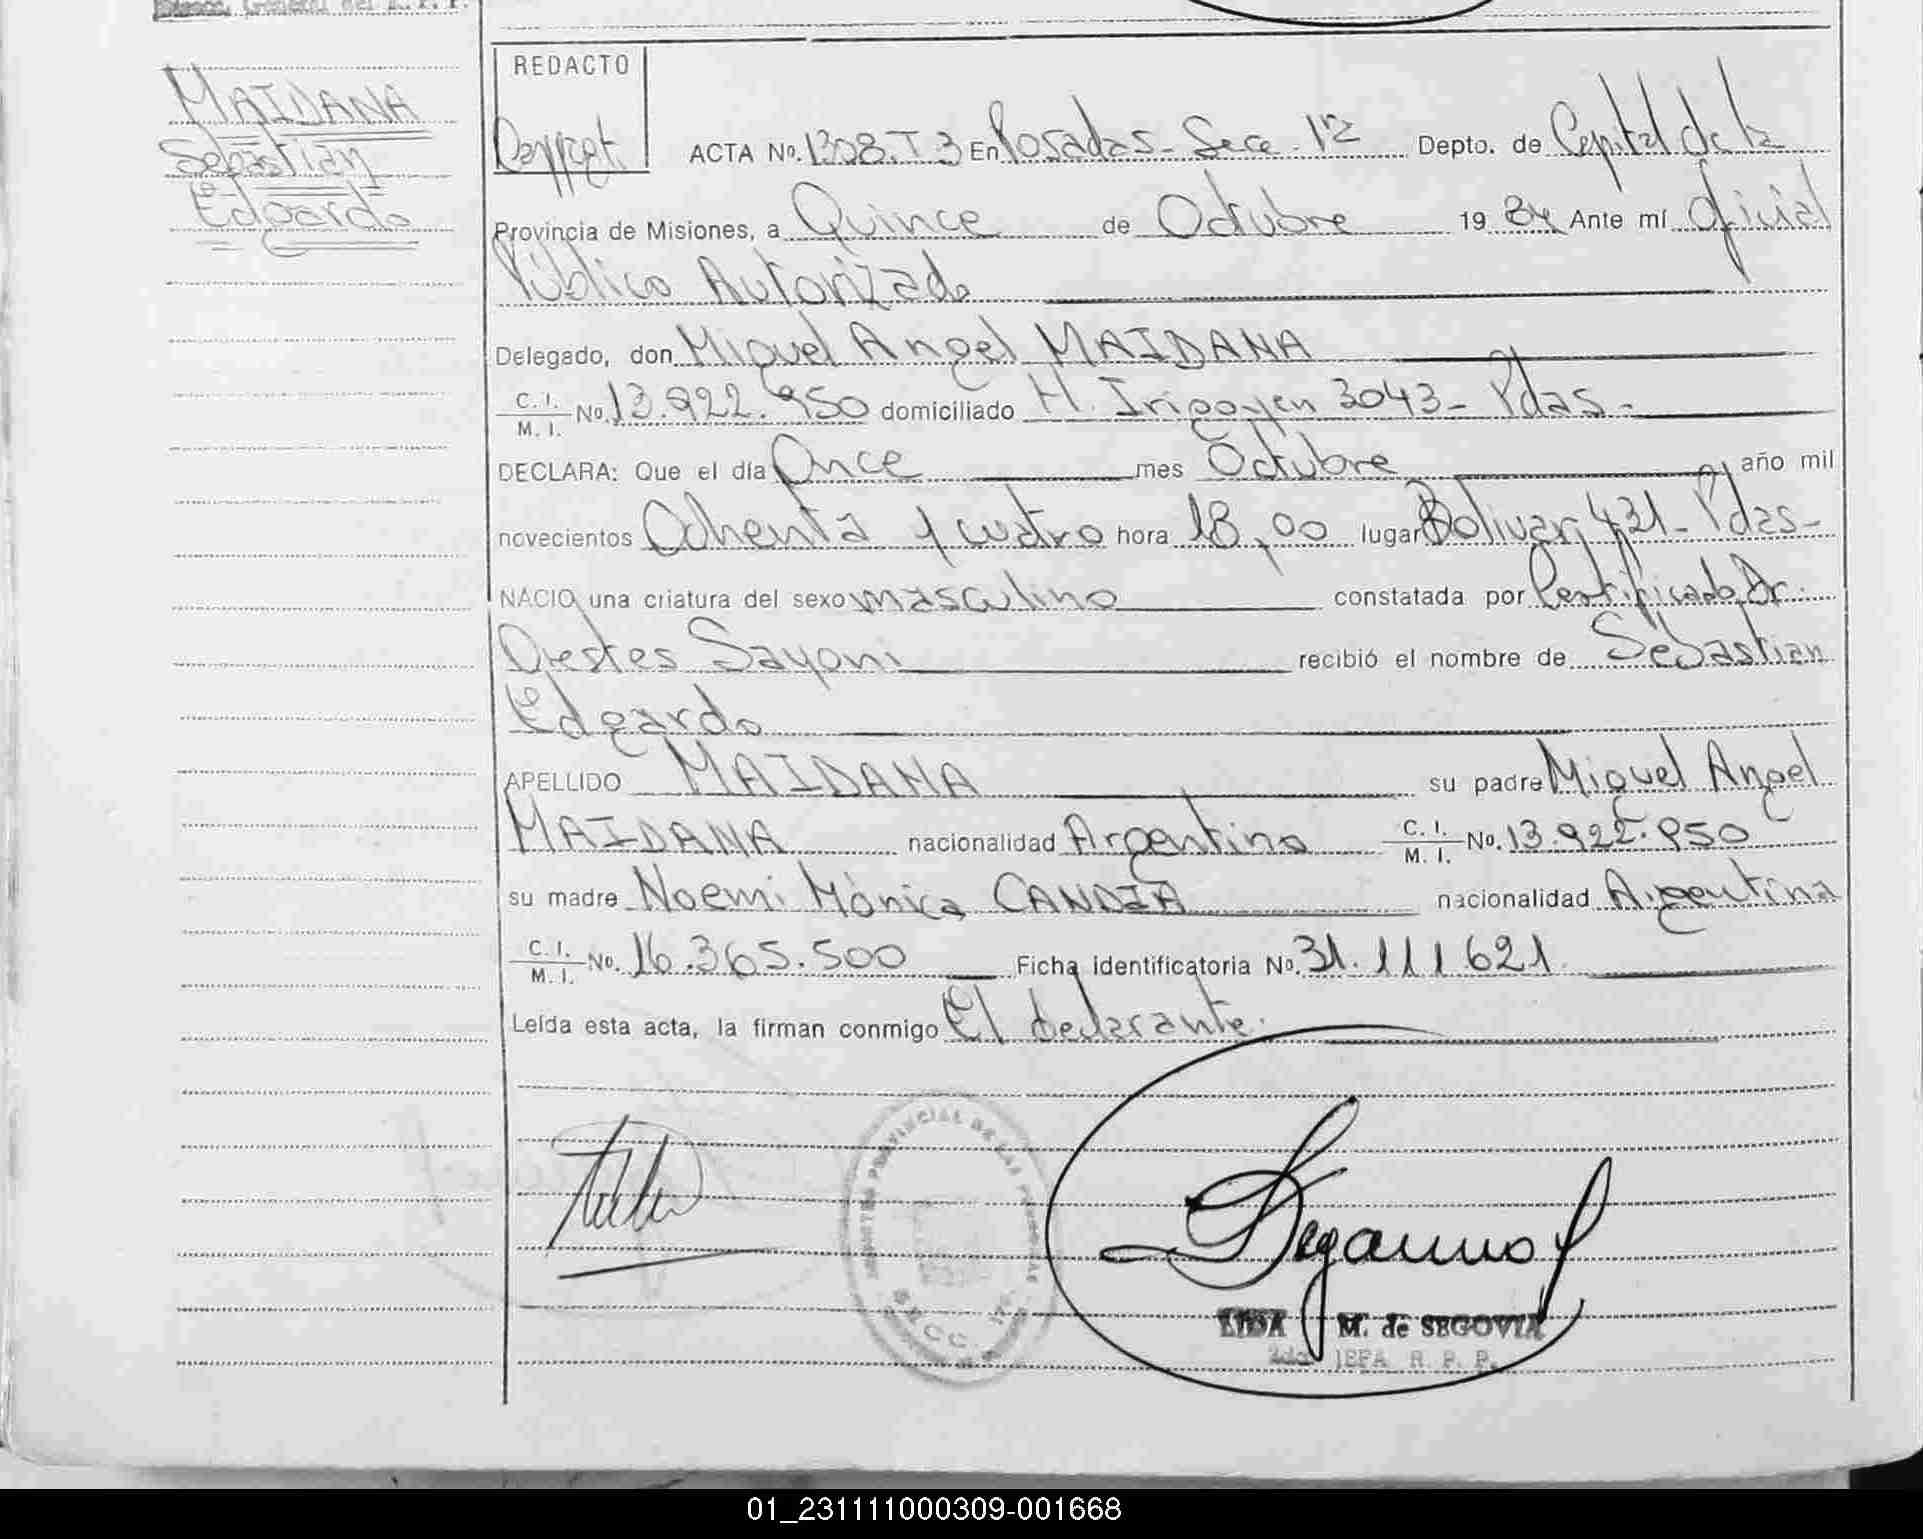 General del R. P. P.
MAIDANA
Sebastian
Edgardo
REDACTO
ACTA No. 1308. T 3 En Posadas - Secc. 12 Depto. de Capital de la
Provincia de Misiones, a Quince de Octubre 19 84 Ante mí Oficial
Público Autorizado
Delegado, don Miguel Angel MAIDANA
C. I.
M. I. No. 13.922.950 domiciliado H. Irigoyen 3043 - Pdas -
DECLARA: Que el día Once mes Octubre año mil
novecientos Ochenta y cuatro hora 18,00 lugar Bolivar 431 - Pdas -
NACIO una criatura del sexo masculino constatada por Certificado Dr.
Orestes Sayoni recibió el nombre de Sebastian
Edgardo
APELLIDO MAIDANA su padre Miguel Angel
MAIDANA nacionalidad Argentino C. I.
M. I. No. 13.922.950
su madre Noemi Mónica CANDIA nacionalidad Argentina
C. I.
M. I. No. 16.365.500 Ficha identificatoria No. 31.111621
Leída esta acta, la firman conmigo El declarante.
PROVINCIAL DE LAS PERSONAS
LIDA M. de SEGOVIA
2da. JEFA R. P. P.
01_231111000309-001668